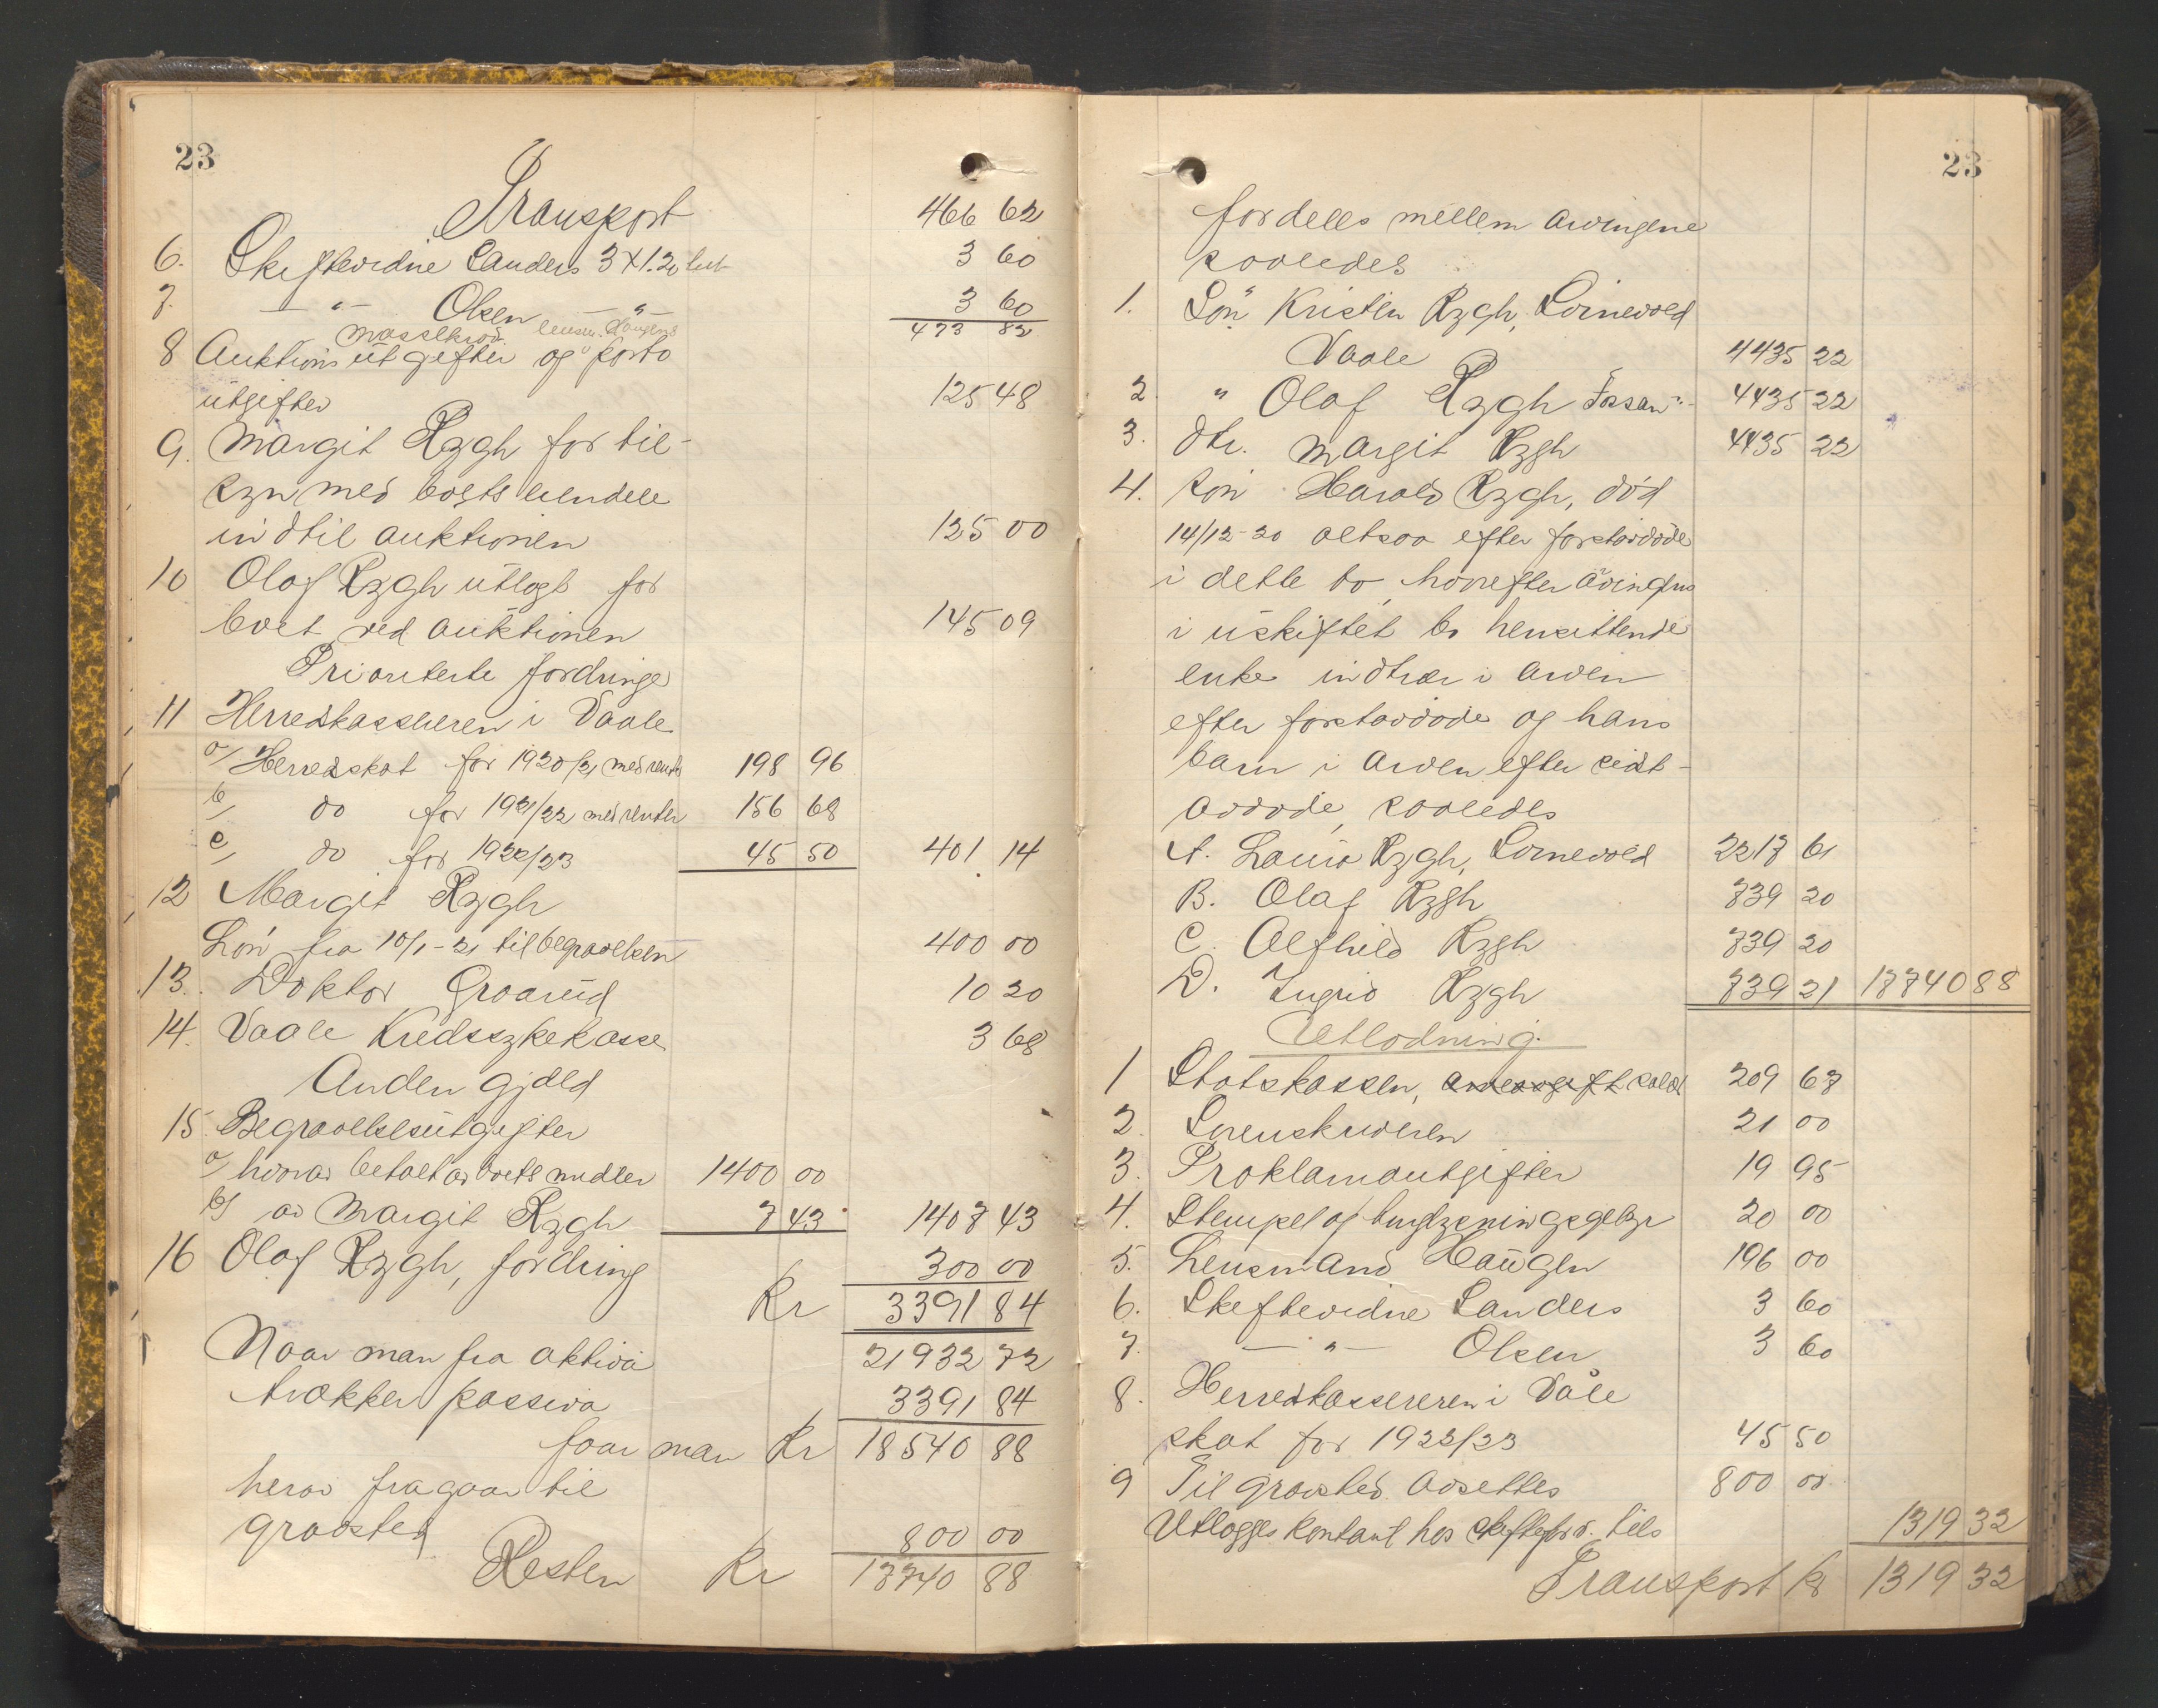 23
Transport 466 62
6. Skiftevidne Sanders 3 X 1.20 3 60
7. — " — Olsen — " — 3 60
473 82
massekrav. lensm. Haugens
8 Auktions utgifter og porto
utgifter 125 48
9. Margit Rygh for til-
syn med boets eiendele
indtil auktionen 125 00
10 Olaf Rygh utlagt for
boet ved auktionen 145 09
Prioriterte fordringer
11 Herredskassereren i Vaale
a/ Herredskat for 1920/21 med renter 198 96
b/ do for 1921/22 med renter 156 68
c/ do for 1922/23 45 50 401 14
12 Margit Rygh
Løn fra 10/1-21 til begravelsen 400 00
13. Doktor Graarud 10 20
14. Vaale Kredssykekasse 3 68
Anden gjæld
15. Begravelsesutgifter
a/ hvorav betalt av boets midler 1400 00
b/ av Margit Rygh 7 43 1407 43
16 Olaf Rygh, fordring 300 00
Kr 3391 84
Naar man fra aktiva 21932 72
trækker passiva 3391 84
faar man Kr 18540 88
herav fragaar til
gravsted 800 00
Resten Kr 17740 88
23
fordeles mellem arvingene
saaledes
1. Søn Kristen Rygh,
Vaale 4435 22
2. " Olaf Rygh 4435 22
3. dtr. Margit Rygh 4435 22
4. søn Harald Rygh, død
14/12-20 altsaa efter førstavdøde
i dette bo, hvorefter
i uskiftet bo hensittende
enke indtrær i arven
efter førstavdøde og hans
barn i arven efter sidst-
avdøde, saaledes
A. Laura Rygh, 2217 61
B. Olaf Rygh 739 20
C. Alfhild Rygh 739 20
D. Ingrid Rygh 739 21 17740 88
Utlodning.
1 Statskassen, arveavgift 209 67
2. Sorenskriveren 21 00
3. Proklamautgifter 19 95
4. Stempel og tinglysningsgebyr 20 00
5. Lensmand Haugen 196 00
6. Skiftevidne Sanders 3 60
7. — " — Olsen 3 60
8. Herredskassereren i Våle
skat for 1922/23 45 50
9 Til gravsted avsettes 800 00
Utlægges kontant hos skifteforv. tils 1319 32
Transport kr 1319 32